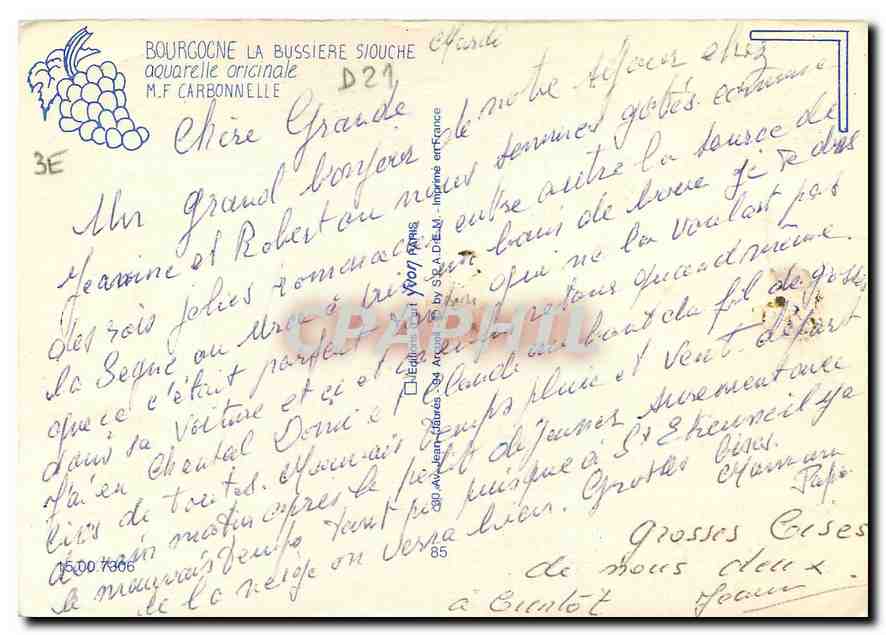 BOURGOGNE LA BUSSIERE S/OUCHE
aquarelle originale
M.F CARBONNELLE
Mardi
D21
3E
Chère Grande
Un grand bonjour de notre séjour chez
Jeannine et Robert où nous sommes gâtés comme
des rois jolies promenades entre autre la source de
la Seigne où Urée à pris un bain de boue je te dis
que ce c'était parfait qui ne la voulait pas
dans sa voiture et ci et retour quand même.
J'ai eu Chantal Domi et Claude au bout du fil de grosses
bises de toutes. Mauvais temps pluie et vent. départ
demain matin après le petit dejeuner surement avec
le mauvais temps tant pis puisque à St Etienne il y a
de la neige on verra bien. Grosses bises.
Maman
Papa
Grosses bises
de nous deux
à bientôt Jeannine
Editions d'art Yvon PARIS
30, Av. Jean-Jaurès - 94 Arcueil © by S.P.A.D.E.M. - Imprimé en France
85
15.00.7306
CPAPHIL